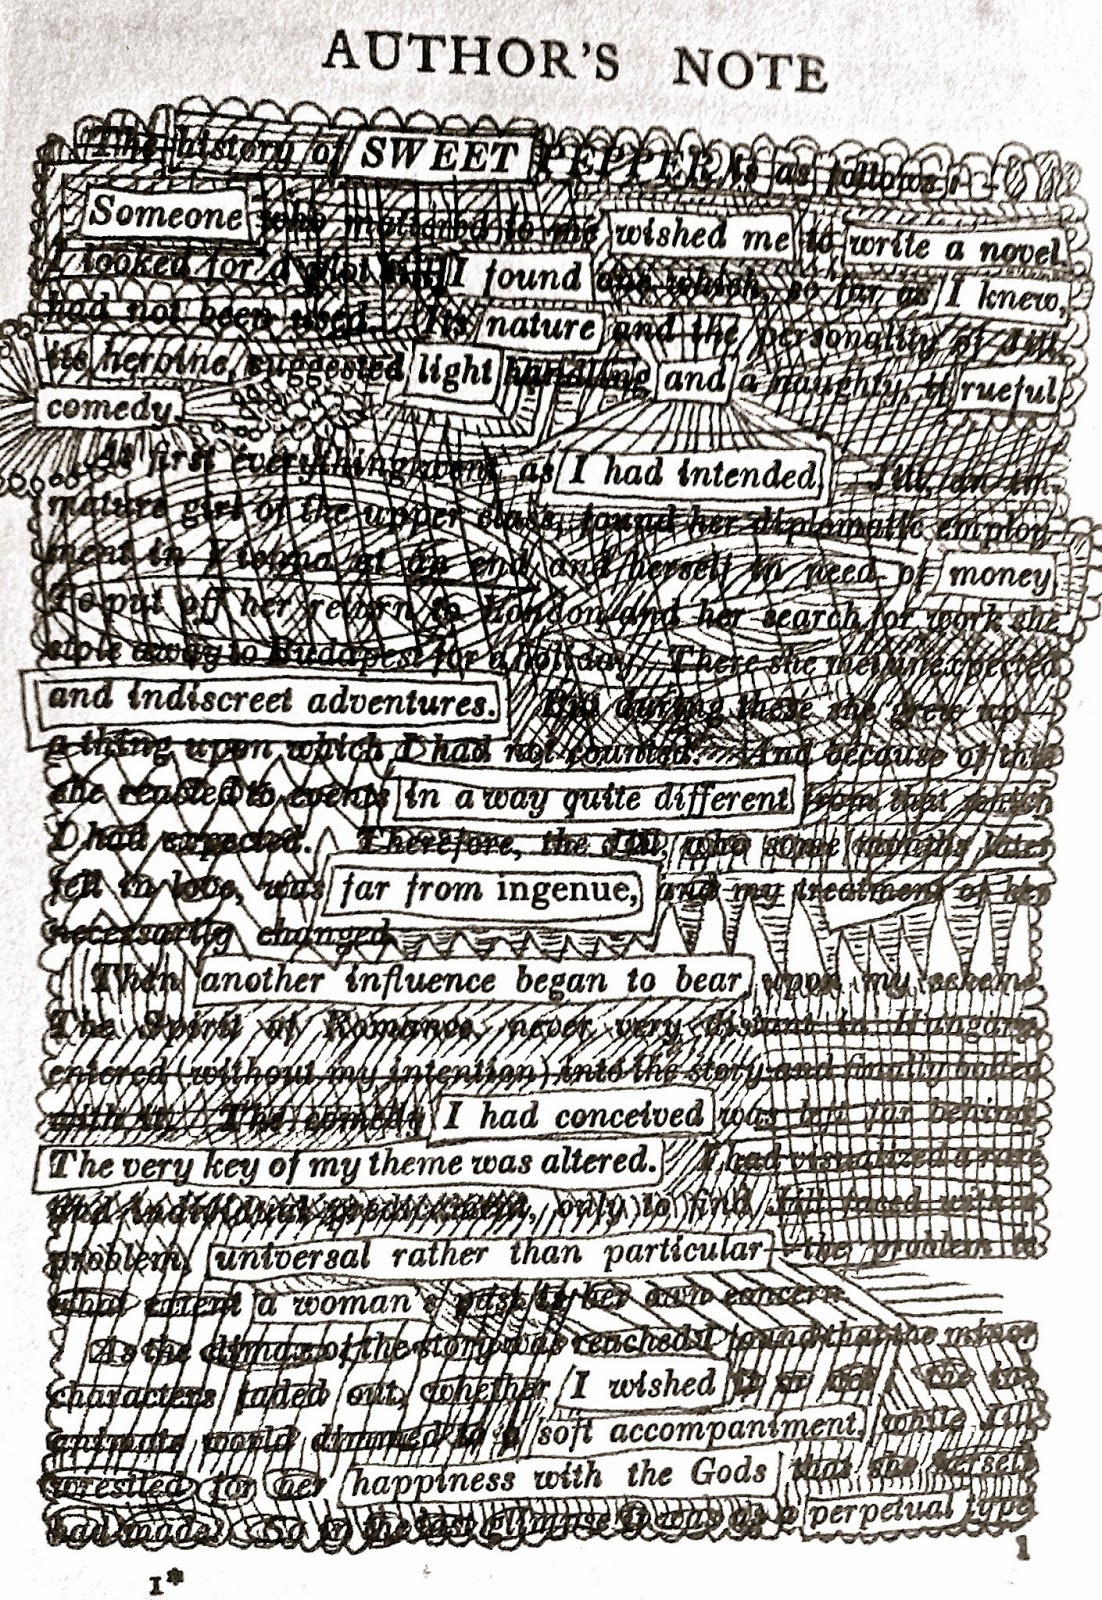 AUTHOR'S NOTE
The history of SWEET PEPPER is as follows:
Someone who mattered to me wished me to write a novel.
I looked for a plot till I found one which, so far as I knew,
had not been used. Its nature and the personality of Jill,
its heroine, suggested light handling and a naughty, if rueful
comedy.
At first everything went as I had intended. Jill, an im-
mature girl of the upper class, found her diplomatic employ-
ment in Vienna at an end, and herself in need of money.
To put off her return to London and her search for work she
stole away to Budapest for a holiday. There she met unexpected
and indiscreet adventures. But during these she grew up—
a thing upon which I had not counted. And because of this
she reacted to events in a way quite different from that which
I had expected. Therefore, the Jill, who some months later
fell in love, was far from ingenue, and my treatment of her
necessarily changed.
Then another influence began to bear upon my scheme.
The Spirit of Romance, never very distant in Hungary,
entered (without my intention) into the story and finally bolted
with it. The comedy I had conceived was left far behind.
The very key of my theme was altered. I had visualized a rare
and individual predicament, only to find Jill faced with a
problem, universal rather than particular—the problem to
what extent a woman's past is her own concern.
As the climax of the story was reached I found that the minor
characters faded out, whether I wished it or not; the in-
animate world dimmed to a soft accompaniment, while Jill
wrestled for her happiness with the Gods that she herself
had made. So in the last glimpse it was as a perpetual type
1
1*